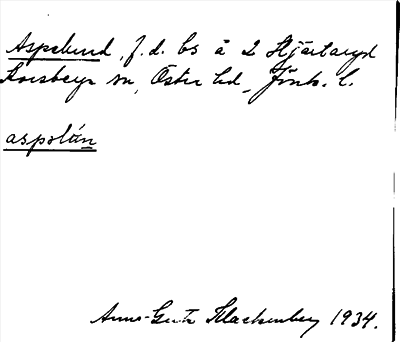 Aspelund, f. d. bs å 2 Hjärtaryd
Korsberga sn, Östra hd, Jönk. l.
aspəlún
Anna-Greta Klackenberg 1934.